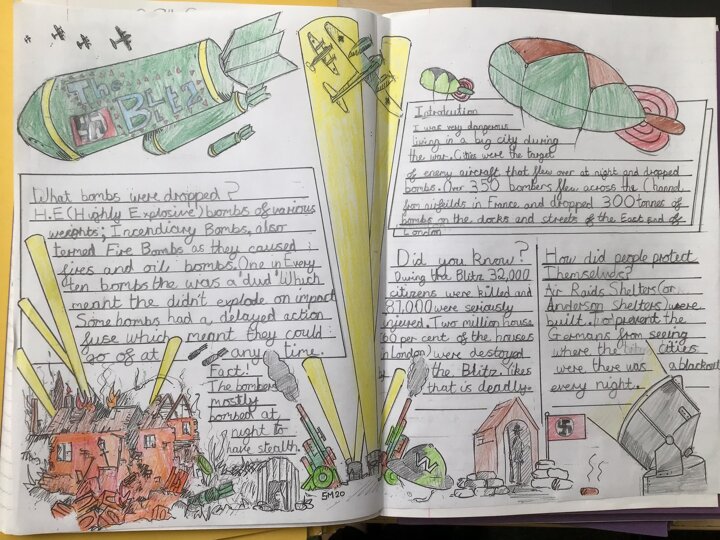 The
Blitz
What bombs were dropped?
H.E (Highly Explosive) bombs of various
weights; Incendiary Bombs, also
termed Fire Bombs as they caused
fires and oil bombs. One in Every
ten bombs the was a 'dud' Which
meant the didn't explode on impact
Some bombs had a delayed action
fuse which meant they could
go of at any time.
Fact!
The bombers
mostly
bombed at
night to
have stealth.
SM20
Introduction
I was very dangerous
living in a big city during
the war. Cities were the target
of enemy aircraft that flew over at night and dropped
bombs. Over 350 bombers flew across the Channel
from airfields in France and dropped 300 tonnes of
bombs on the docks and streets of the East End of
London
Did you know?
During the Blitz 32,000
citizens were killed and
81,000 were seriously
injered. Two million house
(60 per cent of the houses
in London) were destoyed
the Blitz. Yikes
that is deadly.
How did people protect
Themselves?
Air Raids Shelters (or
Anderson Shelters) were
built. to prevent the
Germans from seeing
where the cities
were there was a blackout
every night.